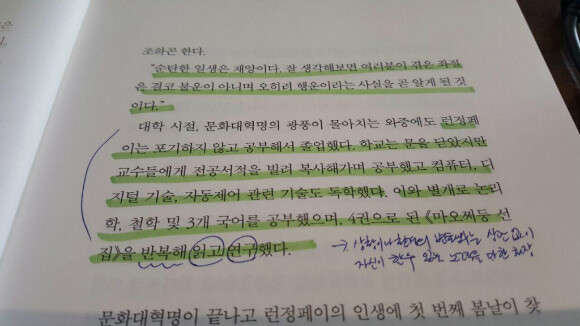 조하곤 한다.
"순탄한 일생은 재앙이다. 잘 생각해보면 여러분이 겪은 좌절
은 결코 불운이 아니며 오히려 행운이라는 사실을 곧 알게 될 것
이다."
대학 시절, 문화대혁명의 광풍이 몰아치는 와중에도 런정페
이는 포기하지 않고 공부해서 졸업했다. 학교는 문을 닫았지만
교수들에게 전공서적을 빌려 복사해가며 공부했고 컴퓨터, 디
지털 기술, 자동제어 관련 기술도 독학했다. 이와 별개로 논리
학, 철학 및 3개 국어를 공부했으며, 4권으로 된 《마오쩌둥 선
집》을 반복해 읽고 연구했다.
→ 상황이나 환경이 변화되는 상관 없이
자신이 할수 있는 노력을 다한 회장
문화대혁명이 끝나고 런정페이의 인생에 첫 번째 봄날이 찾